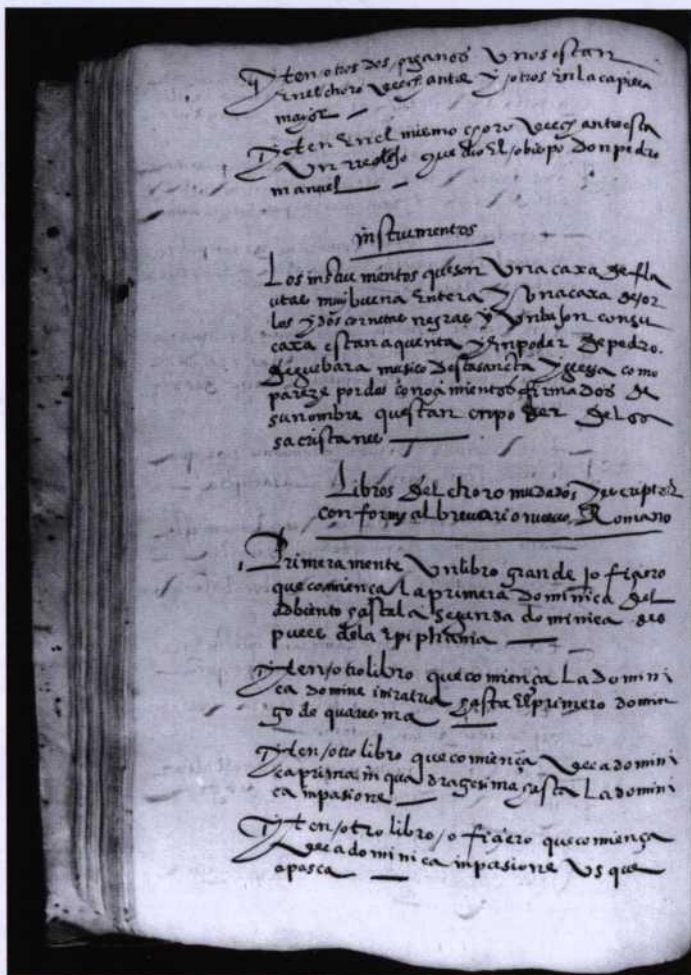 Yten otros dos organos Vnos estan
En el choro desta y otros En la capilla
mayor
Yten En el mismo choro esta
Vn rrelojo que dio El obispo don pedro
manuel
instrumentos
Los instrumentos que son Vna caxa de fla
utas muy buena Entera y Vna caxa de or
los y dos cornetas negras y Vn baxon con su
caxa estan a quenta y En poder de pedro
de guebara musico desta sancta yglesia como
pareze por dos conoçimientos firmados de
su nombre questan en poder de los
sacristanes
Libros del choro mudados y escriptos
conforme al breuiario nueuo Romano
Primeramente Vn libro grande o figero
que comiença La primera dominica del
adbiento hasta la segunda dominica des
pues de la Epiphania
Yten otro libro que comiença La domini
ca domine in tua hasta El primero domin
go de quaresma
Yten otro libro que comiença dominica
prima in quadragesima hasta La domini
ca in pasione
Yten otro libro o figero que comiença
dominica in pasione Vsque
a pasca